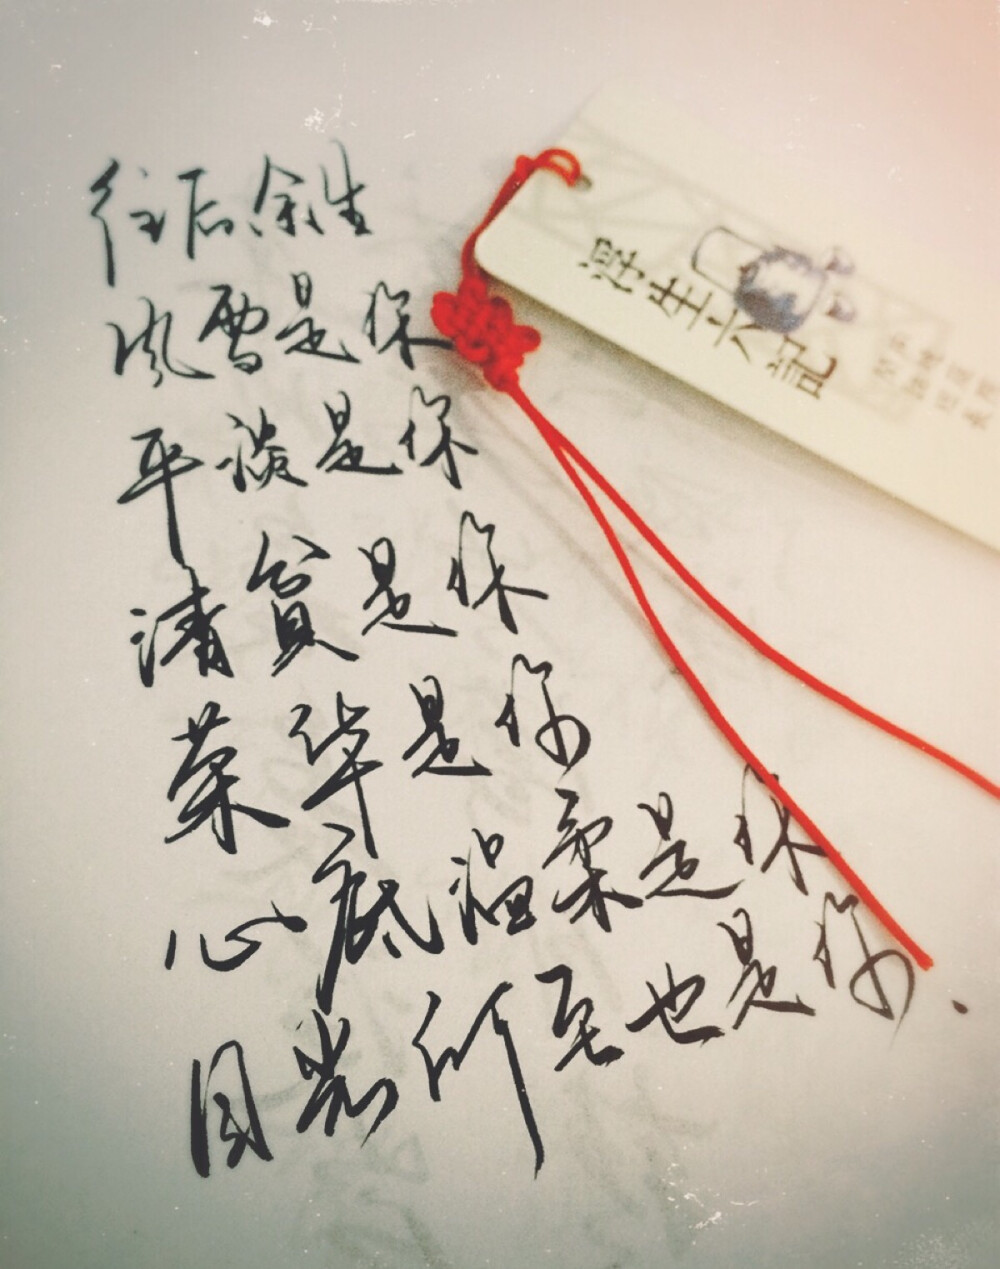 往后余生
风雪是你
平淡是你
清贫是你
荣华是你
心底温柔是你
目光所至也是你.
浮生六記